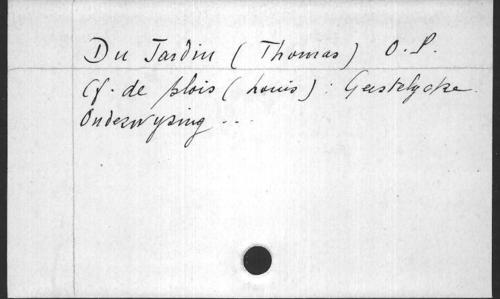 Du Jardin (Thomas) O.P.
Cf. de blois (Louis): Geestelycke
Onderwysing ...